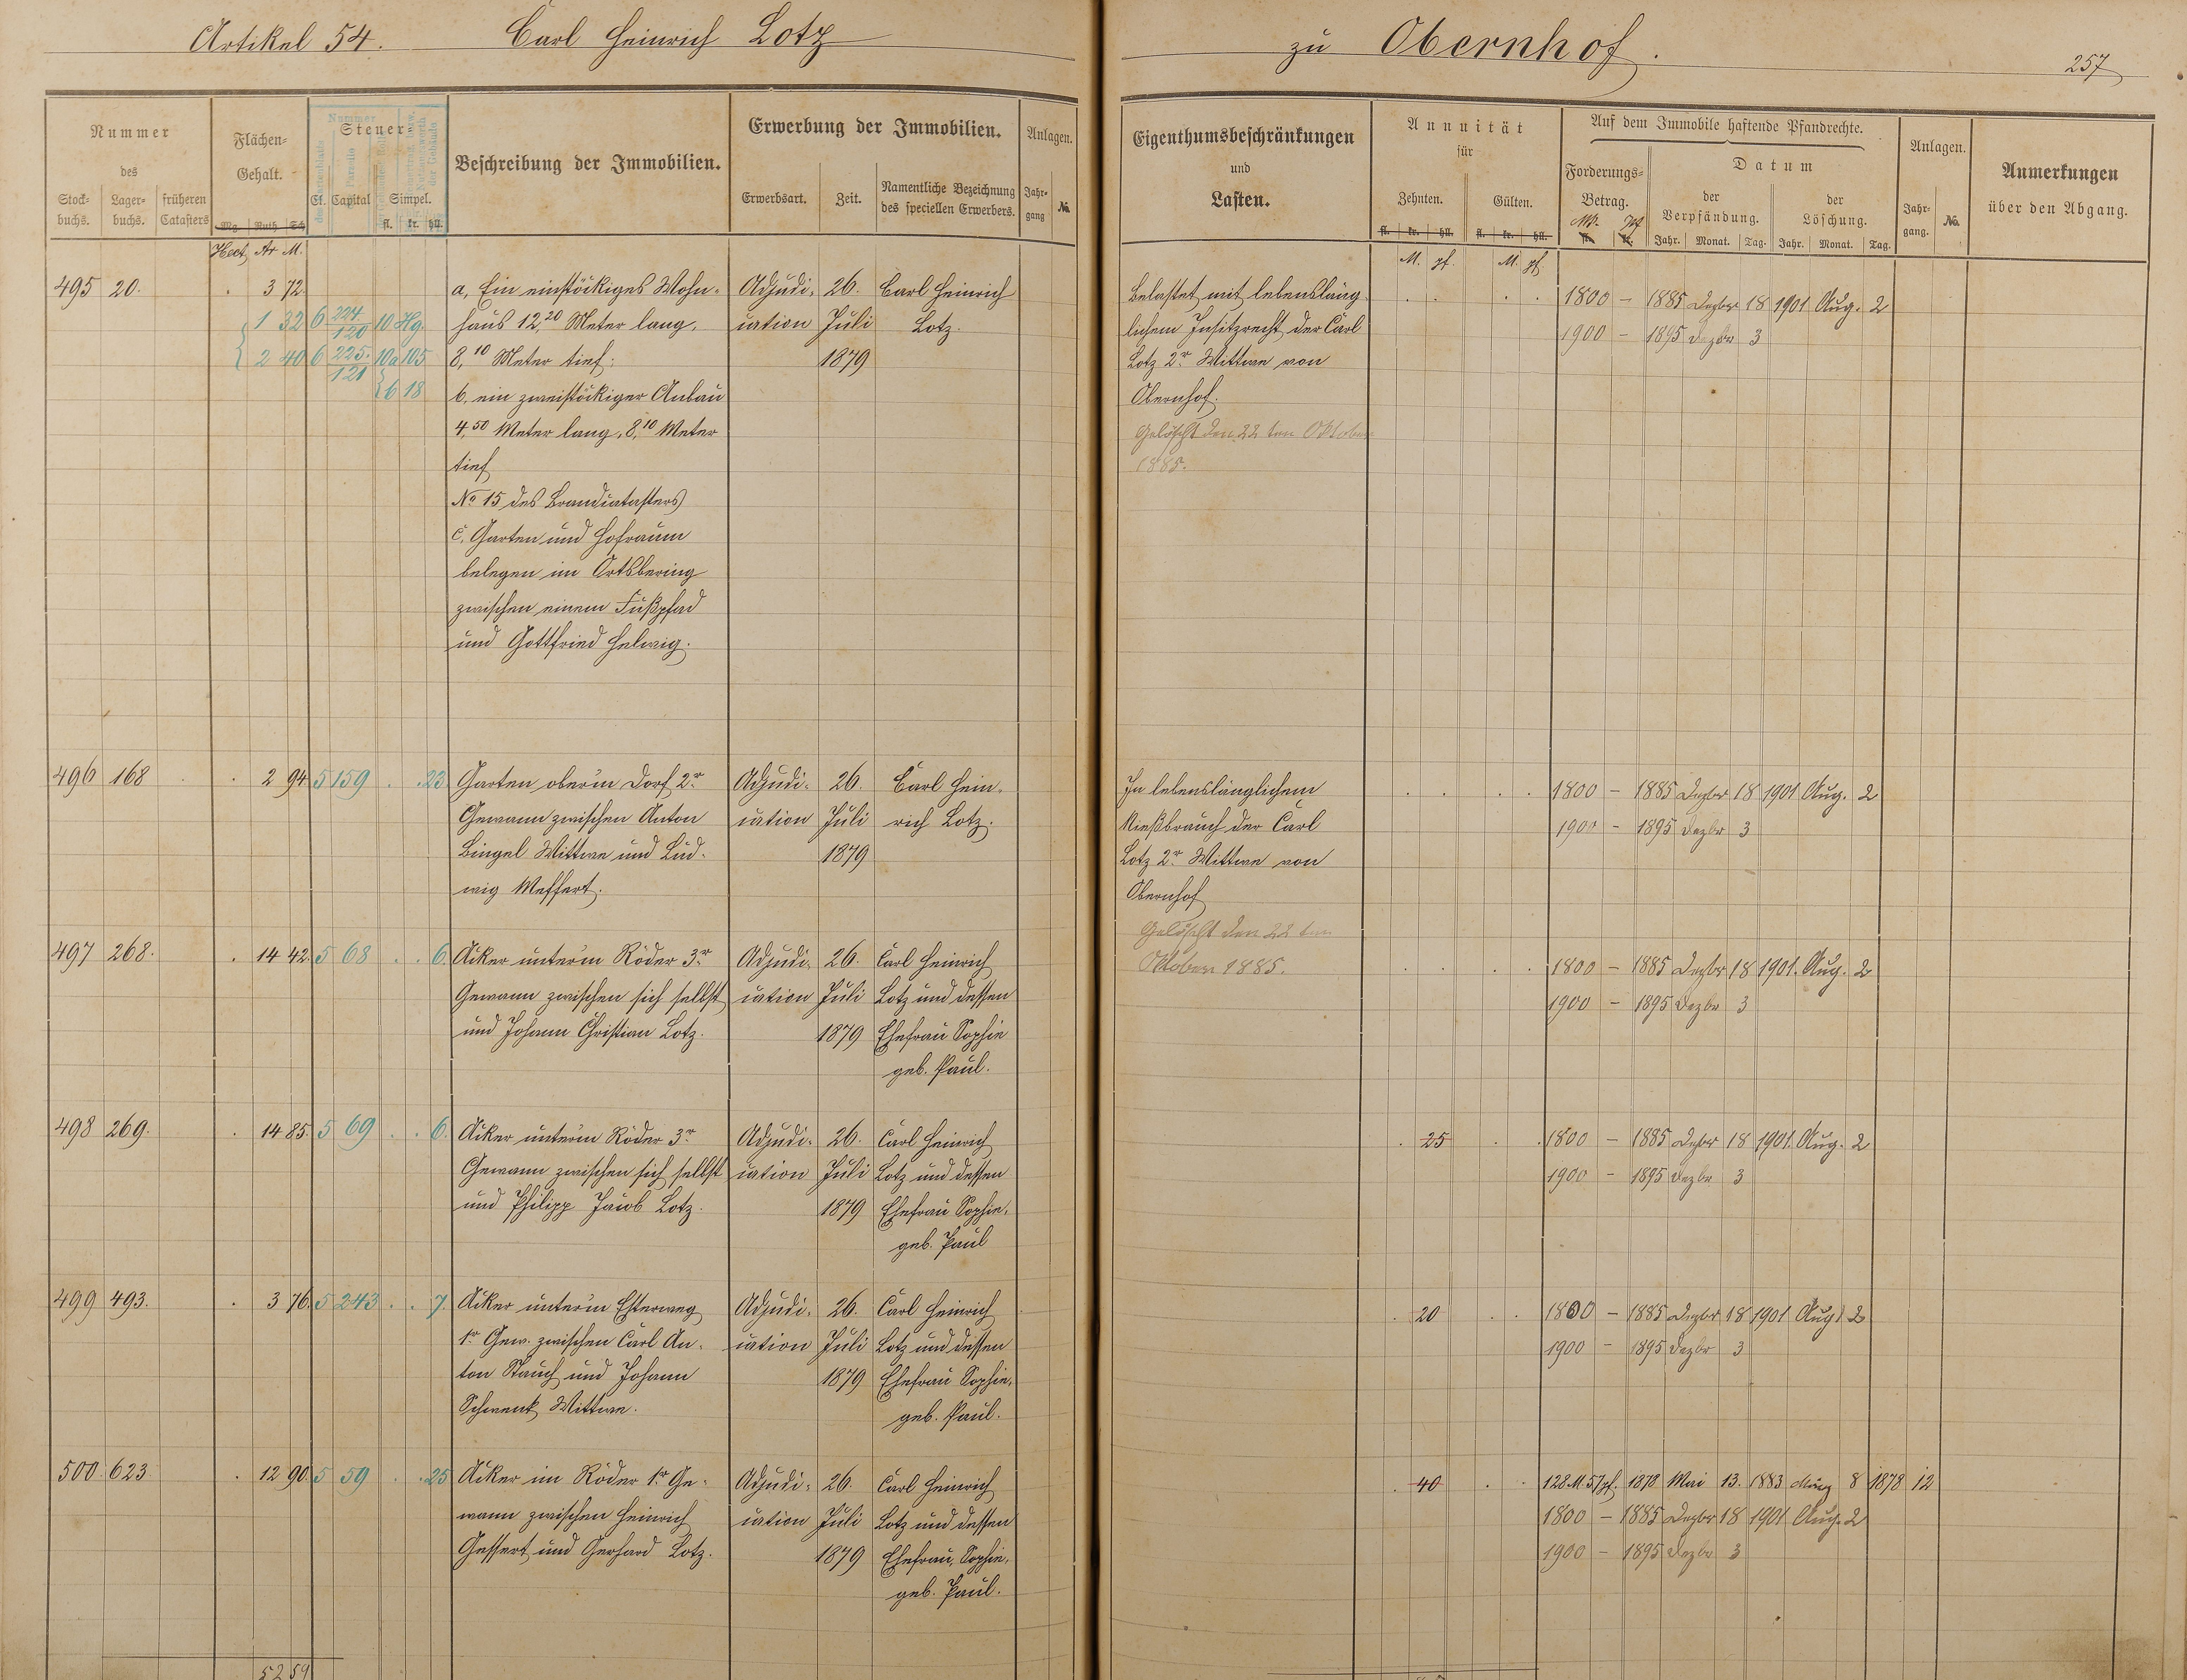 Artikel 54. Carl Heinrich Lotz
zu Obernhof.
257
Nummer
des
Stock-
buchs.
Lager-
buchs.
früheren
Catasters
Flächen-
Gehalt.
Mg. Ruth. Sch
Hect. Ar M.
Steuer-
Nummer
Cl. Capital Simpel.
fl. kr. hll.
Beschreibung der Immobilien.
Erwerbung der Immobilien.
Erwerbsart.
Zeit.
Namentliche Bezeichnung
des speciellen Erwerbers.
Anlagen.
Jahr-
gang
No.
495 20. . 3 72.
{ 1 32 6 224/120 10 Hg.
{ 2 40 6 225./121 10a 105
{ 6 18
a, Ein einstöckiges Wohn-
haus 12,20 Meter lang,
8,10 Meter tief;
b, ein zweistöckiger Anbau
4,50 Meter lang, 8,10 Meter
tief
No 15 des Brandcatasters
c, Garten und Hofraum
belegen im Ortsbering
zwischen einem Fußpfad
und Gottfried Helwig.
Adjudi-
cation
26.
Juli
1879
Carl Heinrich
Lotz.
496 168 . 2 94 5 159 . . 23
Garten oberm Dorf 2r
Gewann zwischen Anton
Bingel Wittwe und Lud-
wig Meffert.
Adjudi-
cation
26.
Juli
1879
Carl Hein-
rich Lotz.
497 268. . 14 42. 5 68 . . 6.
Acker unterm Röder 3r
Gewann zwischen sich selbst
und Johann Christian Lotz.
Adjudi-
cation
26.
Juli
1879
Carl Heinrich
Lotz und dessen
Ehefrau Sophie
geb. Paul.
498 269. . 14 85. 5 69 . . 6.
Acker unterm Röder 3r
Gewann zwischen sich selbst
und Philipp Jacob Lotz.
Adjudi-
cation
26.
Juli
1879
Carl Heinrich
Lotz und dessen
Ehefrau Sophie,
geb. Paul
499 493. . 3 76. 5 243 . . 7.
Acker unterm Esterweg
1r Gew. zwischen Carl An-
ton Stauch und Johann
Schwenk Wittwe.
Adjudi-
cation
26.
Juli
1879
Carl Heinrich
Lotz und dessen
Ehefrau Sophie,
geb. Paul.
500. 623 . 12 90. 5 59 . . 25
Acker im Röder 1r Ge-
wann zwischen Heinrich
Gessert und Gerhard Lotz.
Adjudi-
cation
26.
Juli
1879
Carl Heinrich
Lotz und dessen
Ehefrau, Sophie,
geb. Paul.
52 59
Eigenthumsbeschränkungen
und
Lasten.
Annuität
für
Zehnten.
Gülten.
fl. kr. hll. fl. kr. hll.
M. pf. M. pf.
Auf dem Immobile haftende Pfandrechte.
Forderungs-
Betrag.
Mk. Pf
fl. kr.
Datum
der
Verpfändung.
der
Löschung.
Jahr. Monat. Tag. Jahr. Monat. Tag.
Anlagen.
Jahr-
gang.
No.
Anmerkungen
über den Abgang.
Belastet mit lebensläng-
lichem Insitzrecht der Carl
Lotz 2r Wittwe von
Obernhof.
Gelöscht den 22 ten Oktober
1885.
1800 - 1885 Dezbr 18 1901 Aug. 2
1900 - 1895 Dezbr 3
In lebenslänglichem
Nießbrauch der Carl
Lotz 2r Wittwe von
Obernhof
Gelöscht den 22 ten
Oktober 1885.
1800 - 1885 Dezbr 18 1901 Aug. 2
1900 - 1895 Dezbr 3
1800 - 1885 Dezbr 18 1901. Aug. 2
1900 - 1895 Dezbr 3
. 25 . . 1800 - 1885 Dezbr 18 1901. Aug. 2
1900 - 1895 Dezbr 3
. 20 . . 1800 - 1885 Dezbr 18 1901 Aug. 2
1900 - 1895 Dezbr 3
. 40 . . 128 M. 57 pf. 1878 Mai 13. 1883 März 8 1878 12
1800 - 1885 Dezbr 18 1901 Aug. 2
1900 - 1895 Dezbr 3